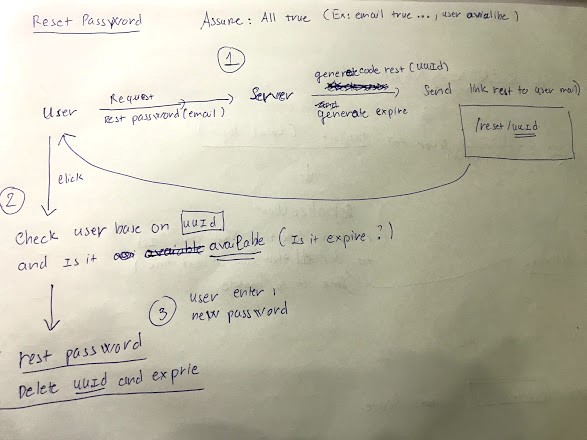 Reset Password
Assure: All true (Ex: email true ..., user avalible)
1
User
Request
rest password(email)
Server
generate code rest (uuId)
generate expire
Send link rest to user mail)
/reset/uuid
click
2
Check user base on uuId
and Is it available (Is it expire?)
3
user enter
new password
rest password
Delete uuId and exprie